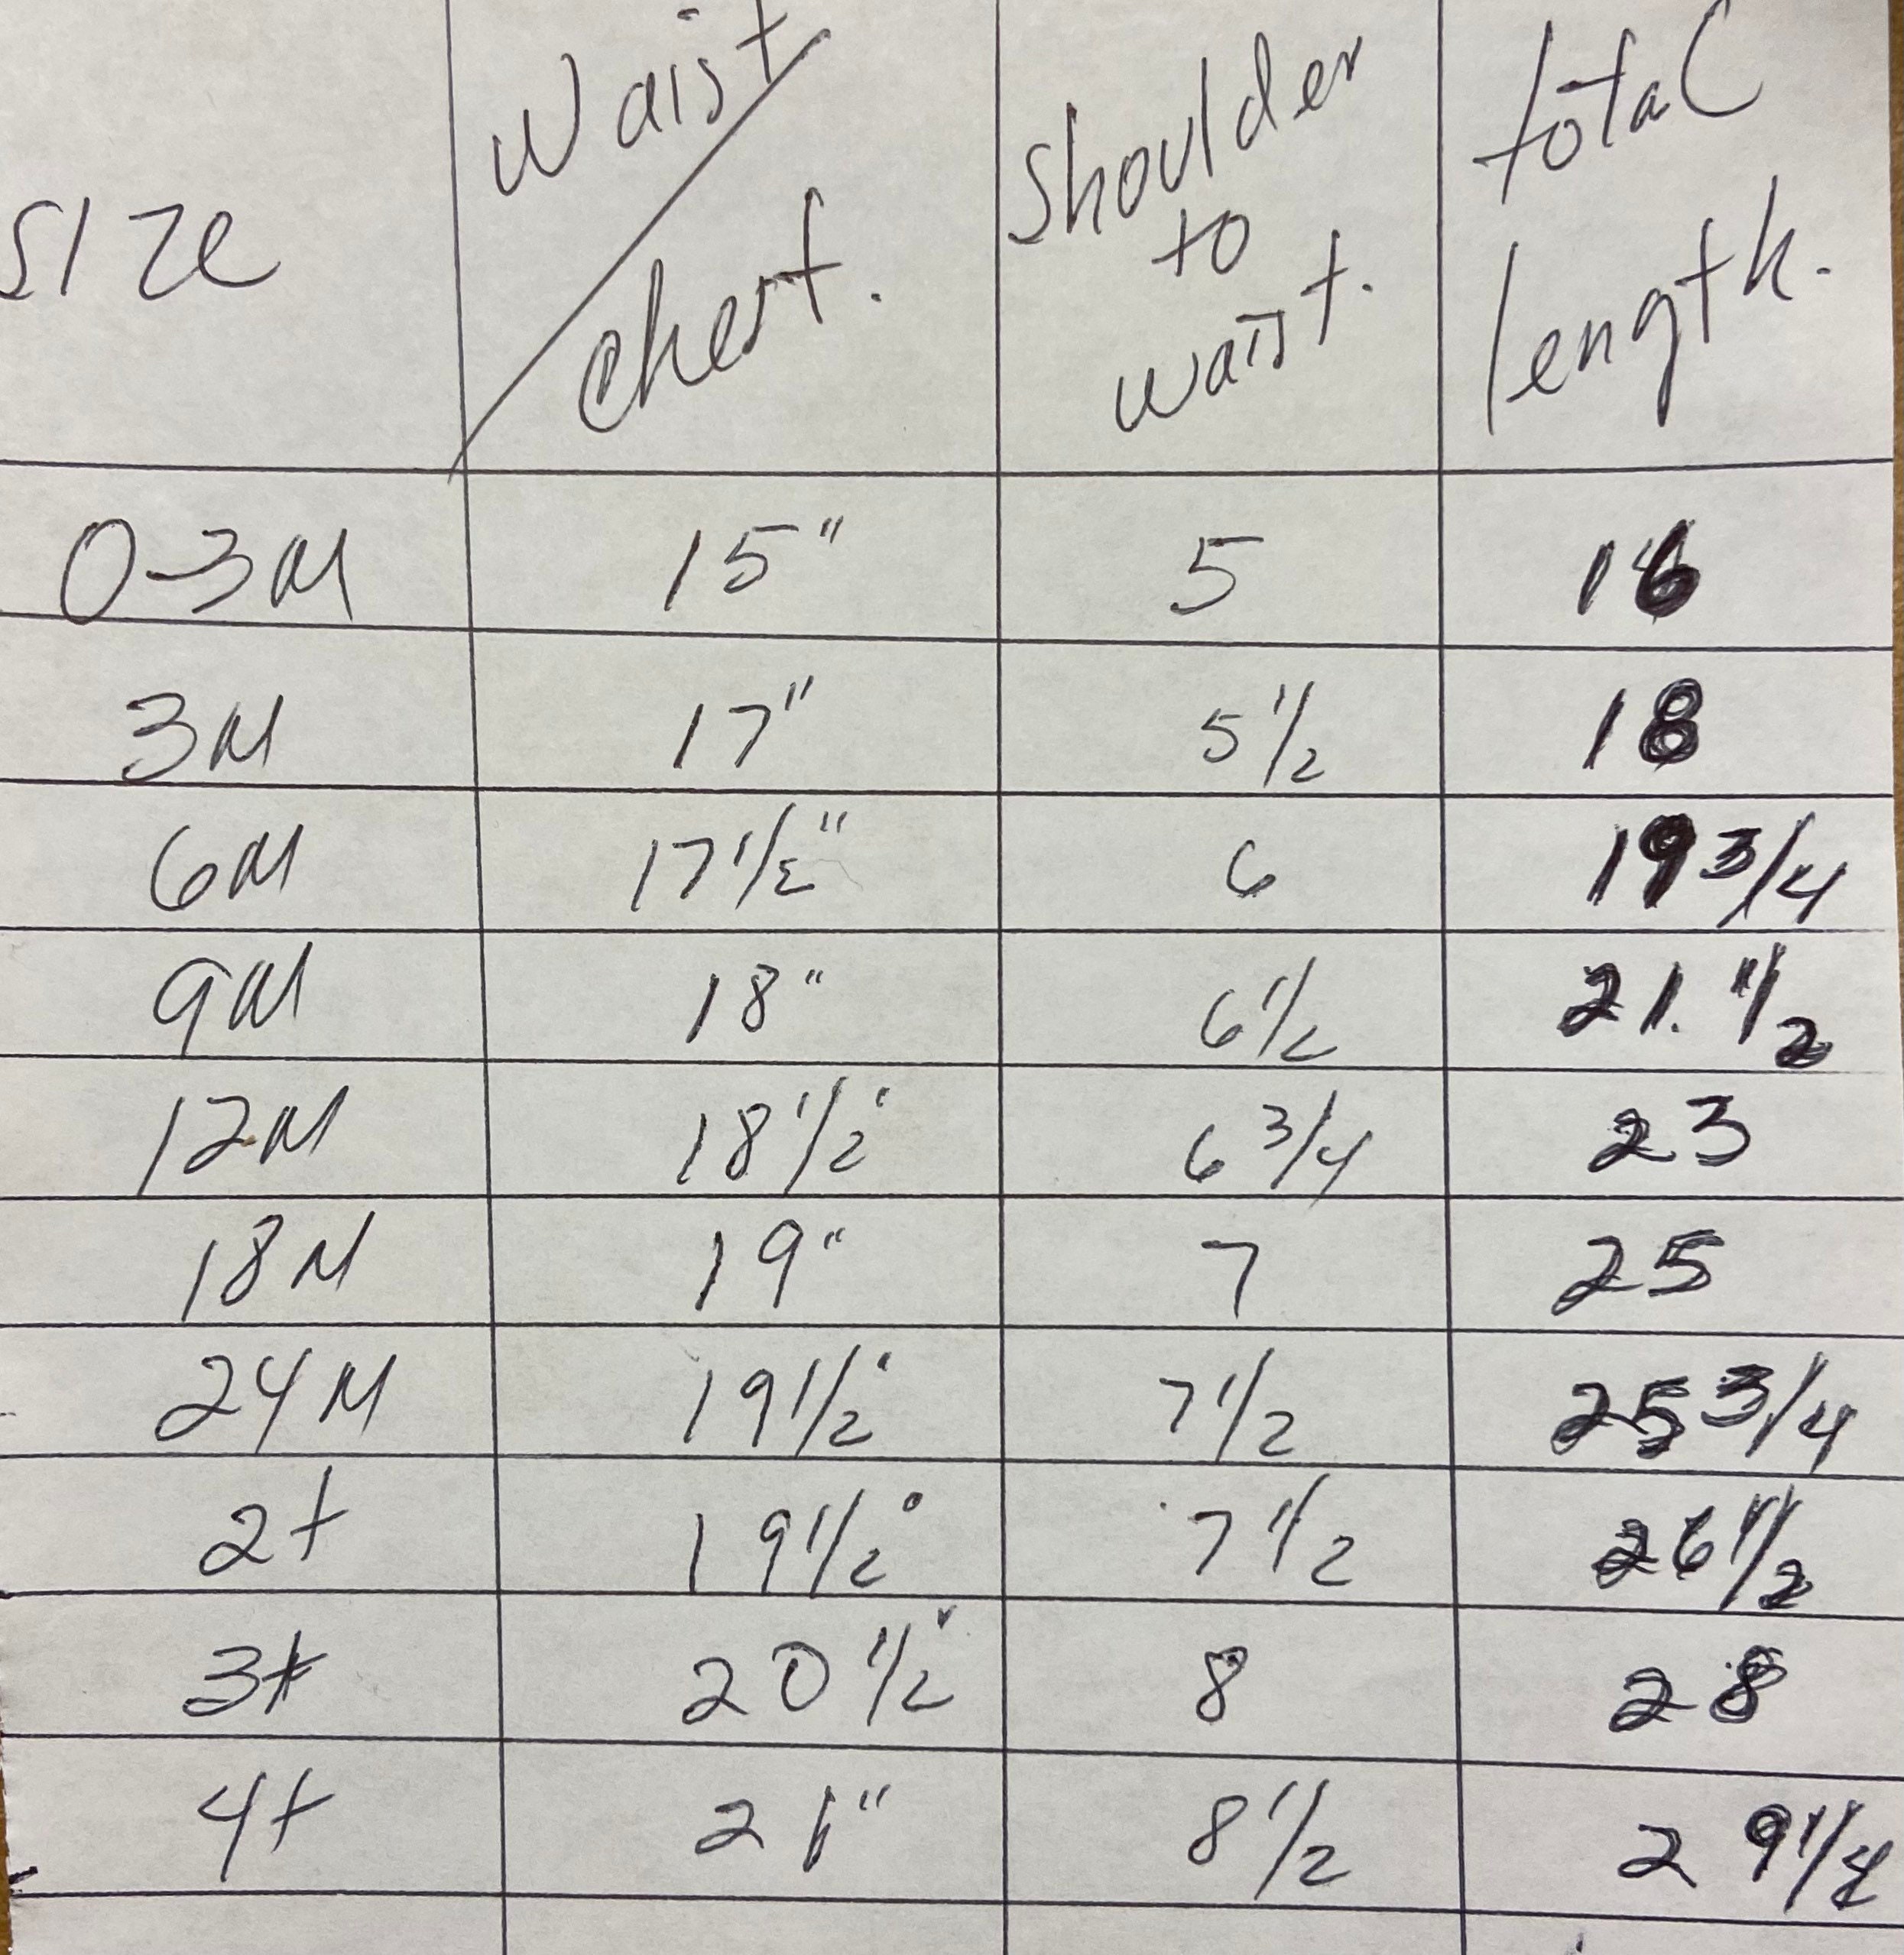 SIZE Waist/Chest. Shoulder to waist. total length.
0-3M 15" 5 16
3M 17" 5 1/2 18
6M 17 1/2" 6 19 3/4
9M 18" 6 1/2 21. 1/2
12M 18 1/2" 6 3/4 23
18M 19" 7 25
24M 19 1/2" 7 1/2 25 3/4
2t 19 1/2" 7 1/2 26 1/2
3t 20 1/2" 8 28
4t 21" 8 1/2 29 1/4